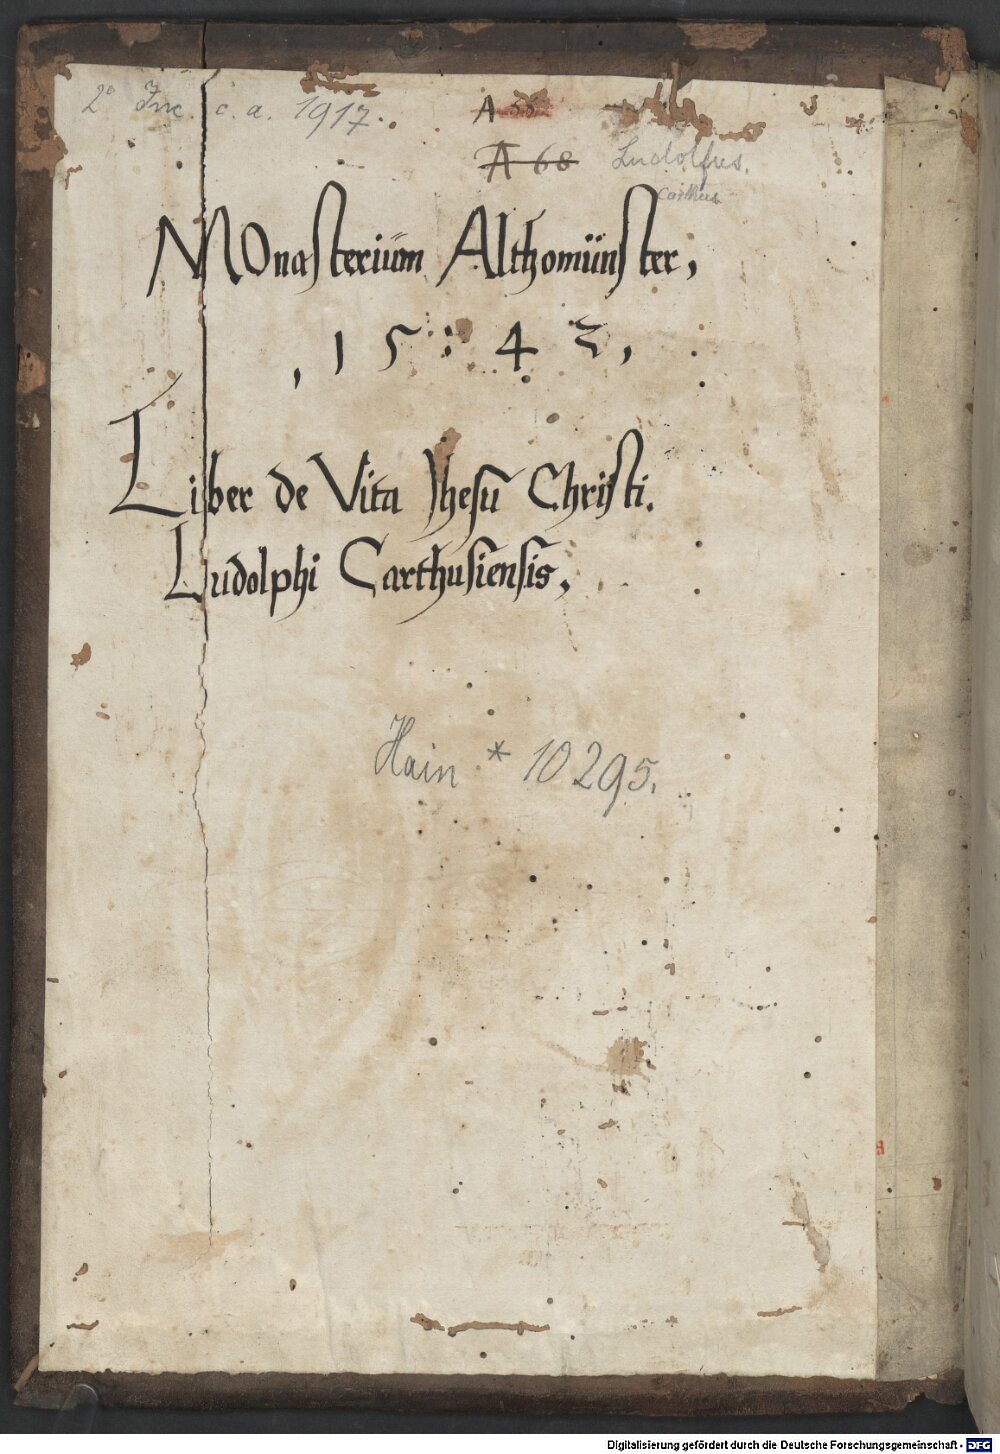 2° Inc. c. a. 1917.
A 55
A 68 Ludolfus.
Carthus.
MOnasterium Althomünster,
, 1 5 : 4 3 ,
Liber de Vita Jhesu Christi.
Ludolphi Carthusiensis,
Hain * 10295.
Digitalisierung gefördert durch die Deutsche Forschungsgemeinschaft - DFG